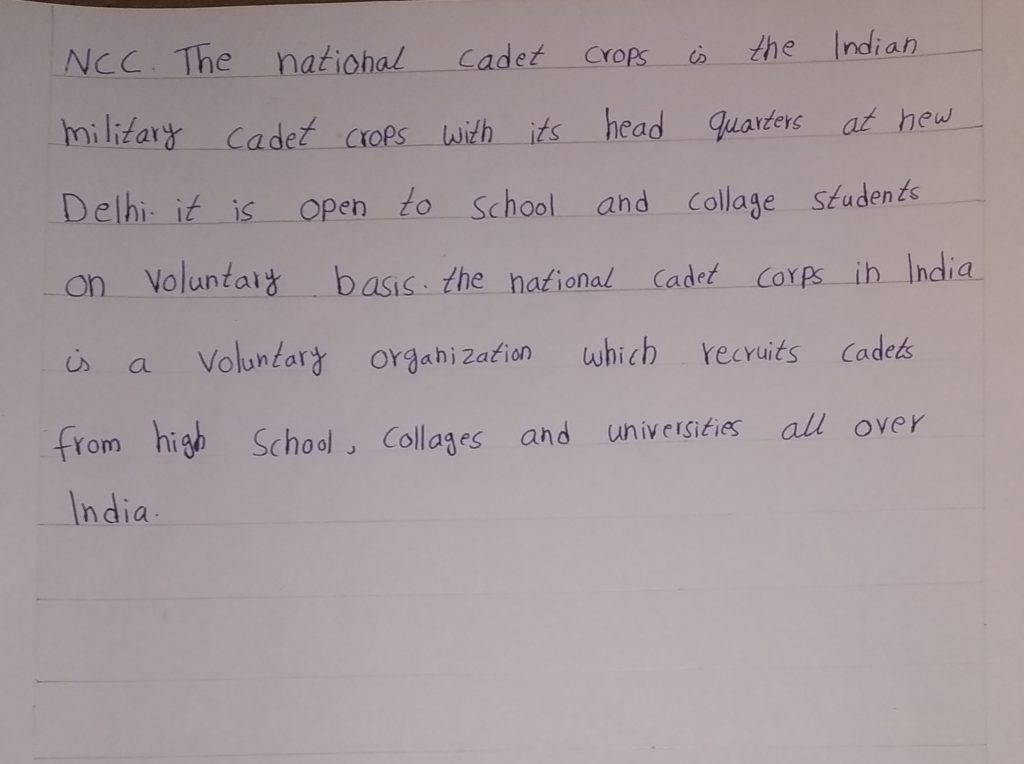 NCC. The national cadet crops is the Indian
military cadet crops with its head quarters at new
Delhi. it is open to school and collage students
on voluntary basis. the national cadet corps in India
is a voluntary organization which recruits cadets
from high school, collages and universities all over
India.